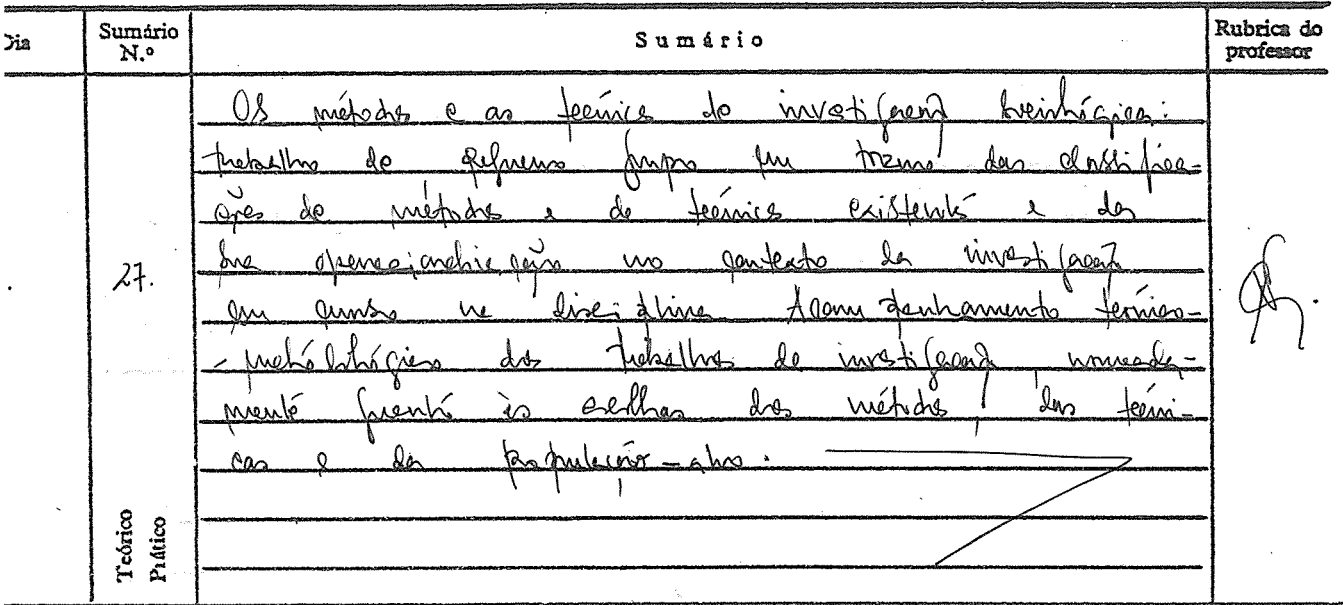 Dia
Sumário N.º
Sumário
Rubrica do professor
Os métodos e as técnicas de investigação sociológica:
trabalho de pequeno grupo em torno das classifica-
ções de métodos e de técnicas existentes e da
sua operacionalização no contexto da investigação
em curso na disciplina. Acompanhamento teórico-
-metodológico dos trabalhos de investigação, nomeada-
mente quanto às escolhas dos métodos, das técni-
cas e da população-alvo.
27.
Teórico
Prático